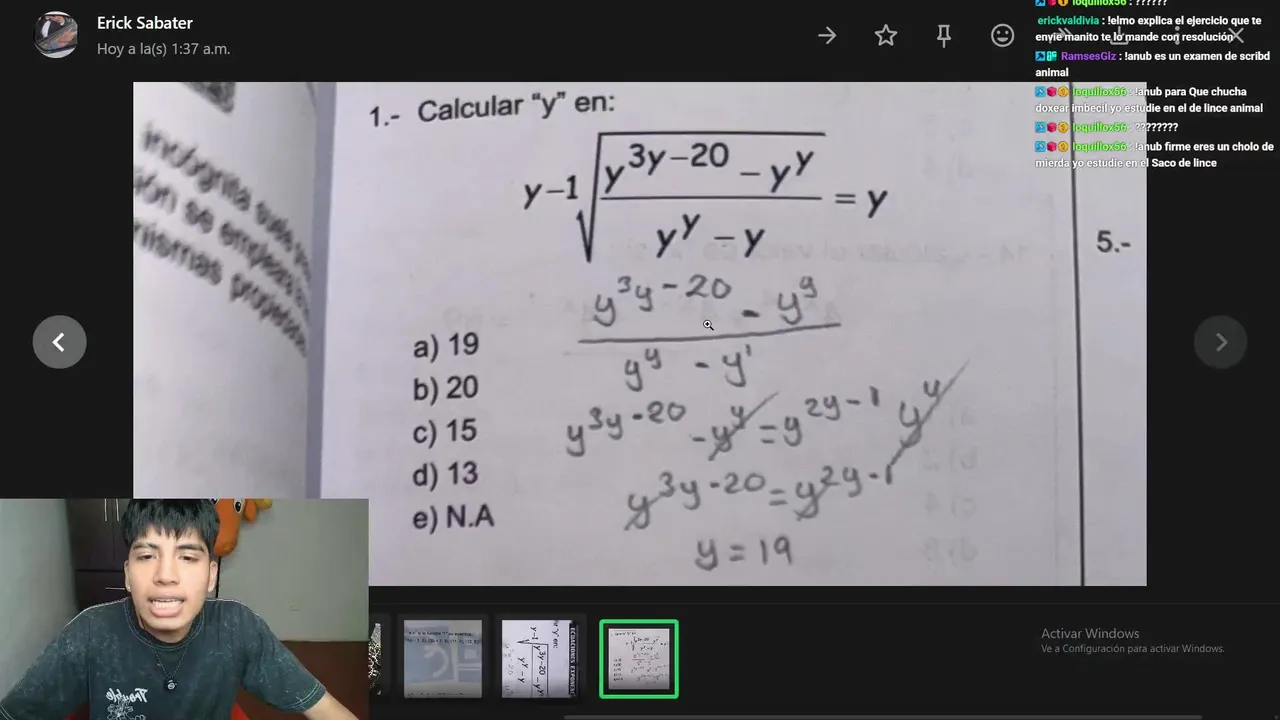 Erick Sabater
Hoy a la(s) 1:37 a.m.
loquillox56 : ??????
erickvaldivia : !elmo explica el ejercicio que te
envie manito te lo mande con resolución
RamsesGlz : !anub es un examen de scribd
animal
loquillox56 : !anub para Que chucha
doxear imbecil yo estudie en el de lince animal
loquillox56 : ????????
loquillox56 : !anub firme eres un cholo de
mierda yo estudie en el Saco de lince
incógnita
ión se emplea
mismas
1.- Calcular "y" en:
y-1√((y^(3y-20) - y^y)/(y^y - y)) = y
a) 19
b) 20
c) 15
d) 13
e) N.A
(y^(3y-20) - y^y)/(y^y - y^1)
y^(3y-20) - y^y = y^(2y-1) y^y
y^(3y-20) = y^(2y-1)
y = 19
5.-
Activar Windows
Ve a Configuración para activar Windows.